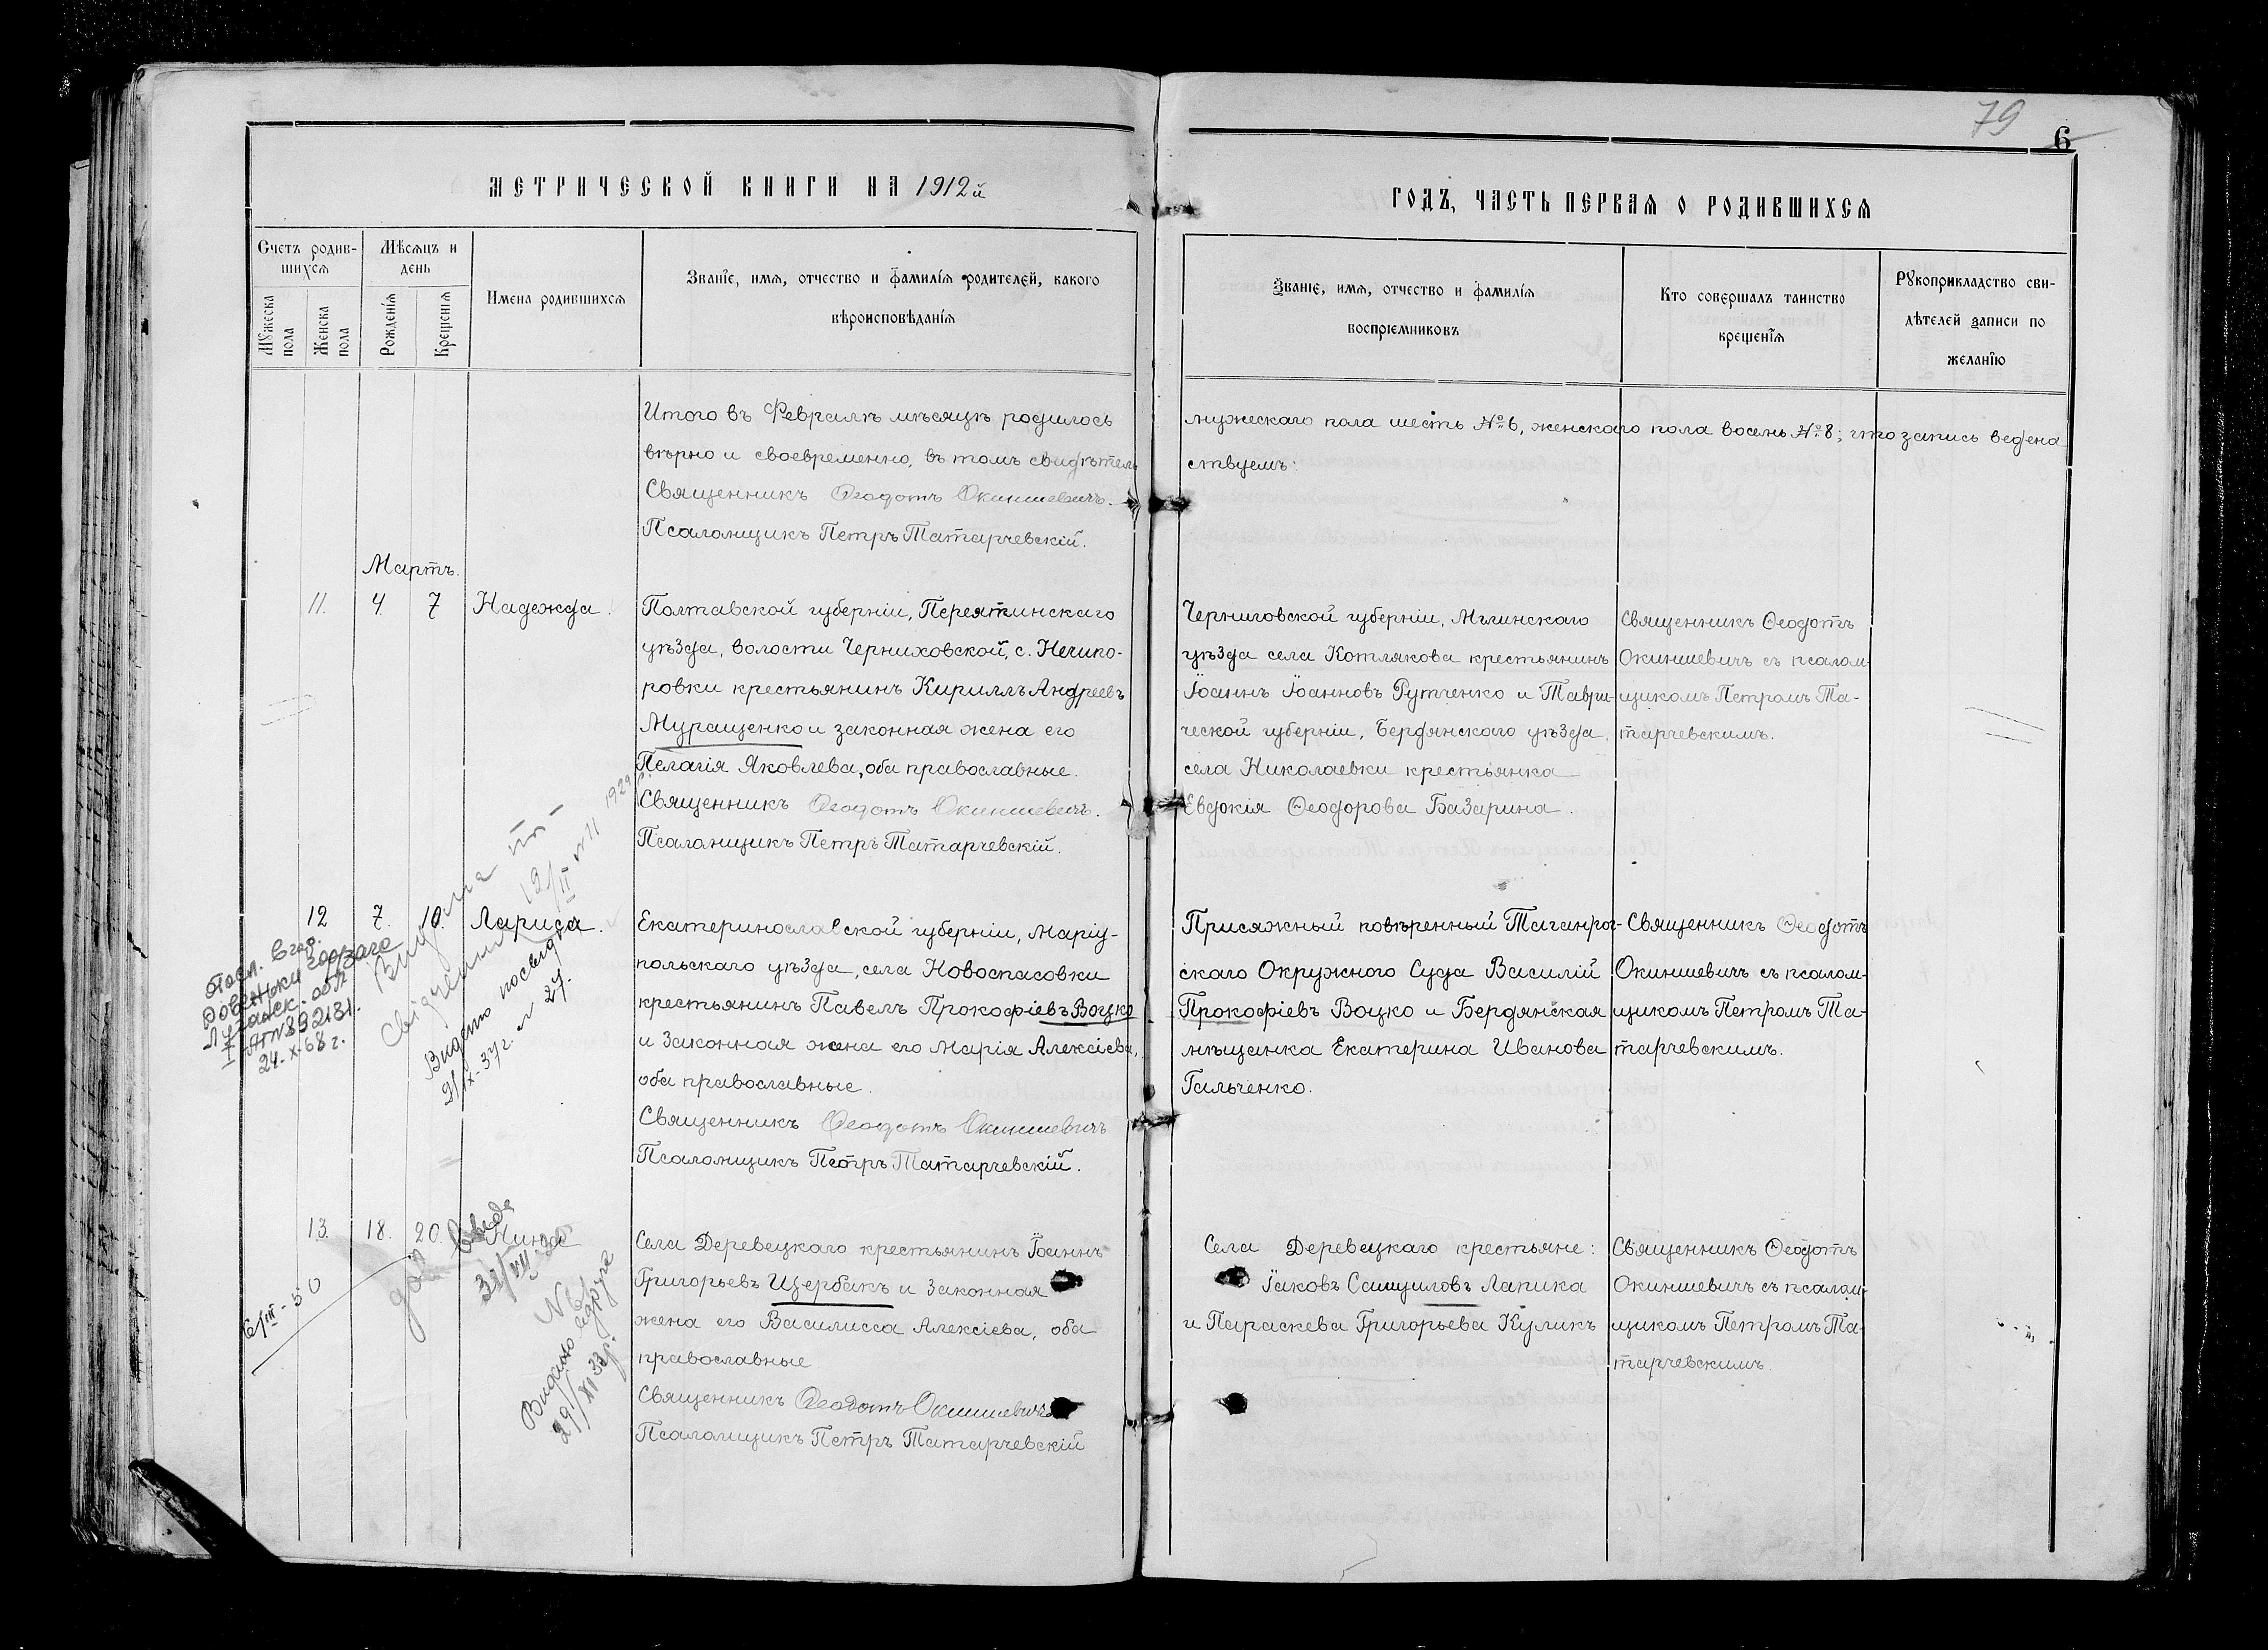 79
6
МЕТРИЧЕСКОЙ КНИГИ НА 1912й
ГОДЪ, ЧАСТЬ ПЕРВАЯ О РОДИВШИХСЯ
Счетъ родив-
шихся
Мужеска
пола
Женска
пола
Мѣсяцъ и
день
Рожденія
Крещенія
Имена родившихся
Званіе, имя, отчество и фамилія родителей, какого
вѣроисповѣданія
Званіе, имя, отчество и фамилія
воспріемниковъ
Кто совершалъ таинство
крещенія
Рукоприкладство сви-
дѣтелей записи по
желанію
Итого въ Февралѣ мѣсяцѣ родилось
мужескаго пола шесть №6, женскаго пола восемь №8; что запись ведена
вѣрно и своевременно, въ томъ свидѣтель
ствуемъ:
Священникъ Ѳеодотъ Окиншевичъ.
Псаломщикъ Петръ Татарчевскій.
Мартъ.
11. 4. 7 Надежда.
Полтавской губерніи, Перятинскаго
уѣзда, волости Черниховской, с. Нечипо-
ровки крестьянинъ Кириллъ Андреевъ
Муращенко и законная жена его
Пелагія Яковлева, оба православные.
Священникъ Ѳеодотъ Окиншевичъ.
Псаломщикъ Петръ Татарчевскій.
Черниговской губерніи, Мглинскаго
уѣзда села Котлякова крестьянинъ
Іоаннъ Іоанновъ Рутченко и Таври-
ческой губерніи, Бердянскаго уѣзда,
села Николаевки крестьянка
Евдокія Ѳеодорова Базарина.
Священникъ Ѳеодотъ
Окиншевичъ съ псалом-
щикомъ Петромъ Та-
тарчевскимъ.
12 7. 10. Лариса.
Екатеринославской губерніи, Маріу-
польскаго уѣзда, села Новоспасовки
крестьянинъ Павелъ Прокофіевъ Воцко
и законная жена его Марія Алексіева,
оба православные.
Священникъ Ѳеодотъ Окиншевичъ
Псаломщикъ Петръ Татарчевскій.
Присяжный повѣренный Таганрог-
скаго Окружного Суда Василій
Прокофіевъ Воцко и Бердянская
мѣщанка Екатерина Иванова
Гальченко.
Священникъ Ѳеодотъ
Окиншевичъ съ псалом-
щикомъ Петромъ Та-
тарчевскимъ.
Ровеньки
Луганск. обл
892181.
24-X-68 г.
1929
Видано посвідку
2/IX-37 г.
13. 18. 20. Нина
Села Деревецкаго крестьянинъ Іоаннъ
Григорьевъ Щербакъ и законная
жена его Василисса Алексіева, оба
православные
Священникъ Ѳеодотъ Окиншевичъ
Псаломщикъ Петръ Татарчевскій
Села Деревецкаго крестьяне:
Іаковъ Самуиловъ Лапика
и Параскева Григорьева Куликъ
Священникъ Ѳеодотъ
Окиншевичъ съ псалом-
щикомъ Петромъ Та-
тарчевскимъ.
6/III-50
Видано
29/XI 33 р.